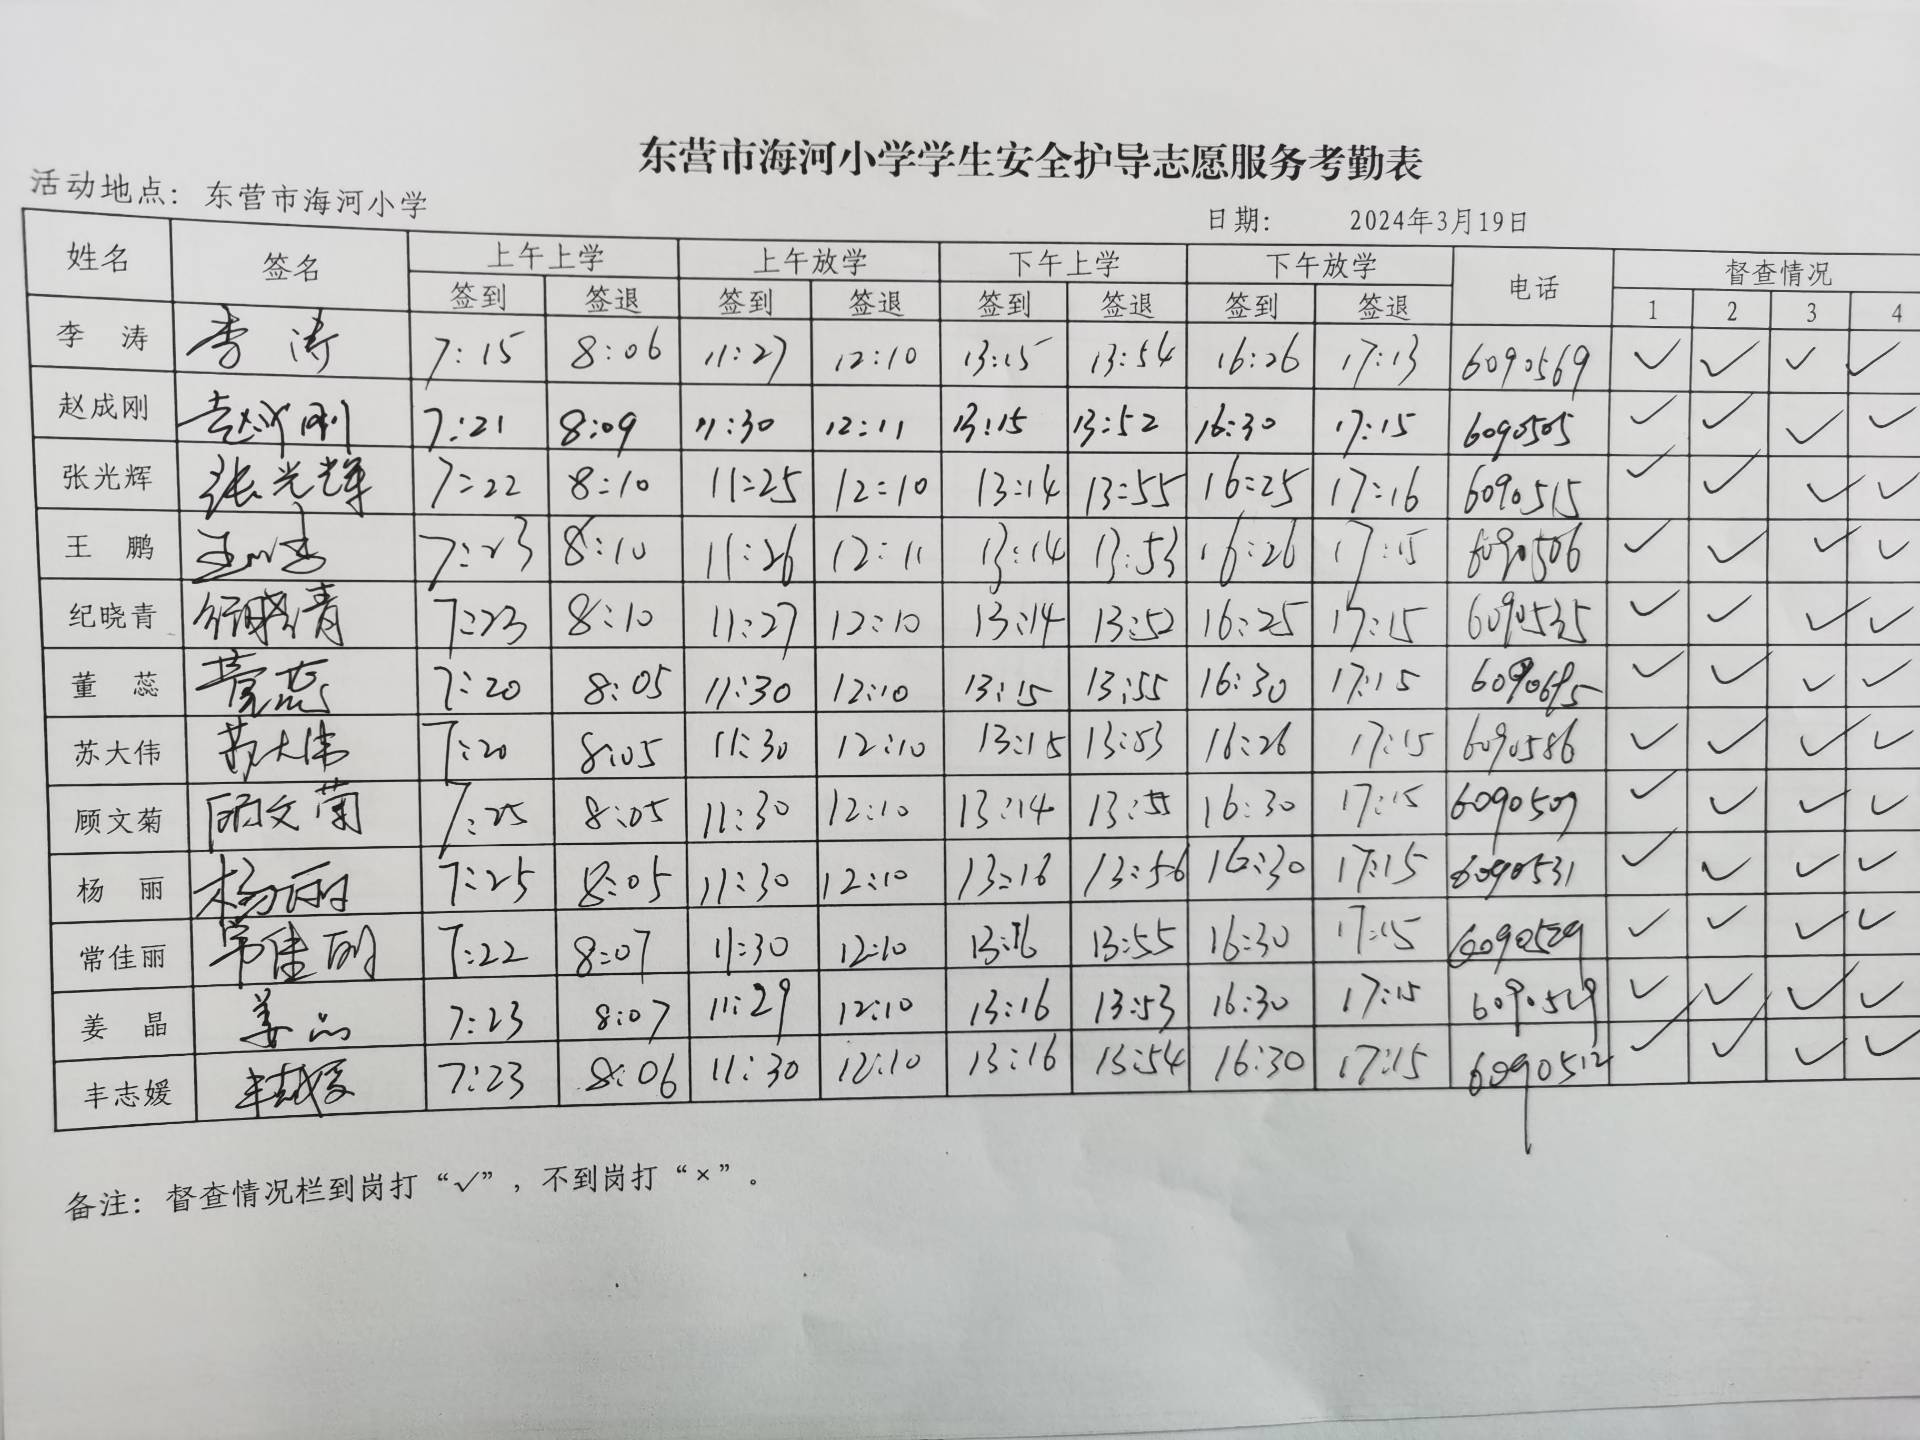 东营市海河小学学生安全护导志愿服务考勤表
活动地点: 东营市海河小学
日期: 2024年3月19日
姓名 签名 上午上学 上午放学 下午上学 下午放学 电话 督查情况
签到 签退 签到 签退 签到 签退 签到 签退 1 2 3 4
李 涛 李涛 7:15 8:06 11:27 12:10 13:15 13:54 16:26 17:13 6090569 ✓ ✓ ✓ ✓
赵成刚 赵成刚 7:21 8:09 11:30 12:11 13:15 13:52 16:30 17:15 6090505 ✓ ✓ ✓ ✓
张光辉 张光辉 7:22 8:10 11:25 12:10 13:14 13:55 16:25 17:16 6090515 ✓ ✓ ✓ ✓
王 鹏 7:23 8:10 11:26 12:11 13:14 13:53 16:26 17:15 6090506 ✓ ✓ ✓ ✓
纪晓青 纪晓青 7:23 8:10 11:27 12:10 13:14 13:52 16:25 17:15 6090535 ✓ ✓ ✓ ✓
董 蕊 董蕊 7:20 8:05 11:30 12:10 13:15 13:55 16:30 17:15 ✓ ✓ ✓ ✓
苏大伟 苏大伟 7:20 8:05 11:30 12:10 13:15 13:53 16:26 17:15 6090586 ✓ ✓ ✓ ✓
顾文菊 顾文菊 7:25 8:05 11:30 12:10 13:14 13:55 16:30 17:15 6090507 ✓ ✓ ✓ ✓
杨 丽 杨丽 7:25 8:05 11:30 12:10 13:16 13:56 16:30 17:15 6090531 ✓ ✓ ✓ ✓
常佳丽 常佳丽 7:22 8:07 11:30 12:10 13:16 13:55 16:30 17:15 6090529 ✓ ✓ ✓ ✓
姜 晶 姜晶 7:23 8:07 11:29 12:10 13:16 13:53 16:30 17:15 6090529 ✓ ✓ ✓ ✓
丰志媛 丰志媛 7:23 8:06 11:30 12:10 13:16 13:54 16:30 17:15 6090512 ✓ ✓ ✓ ✓
备注: 督查情况栏到岗打“√”, 不到岗打“×”。